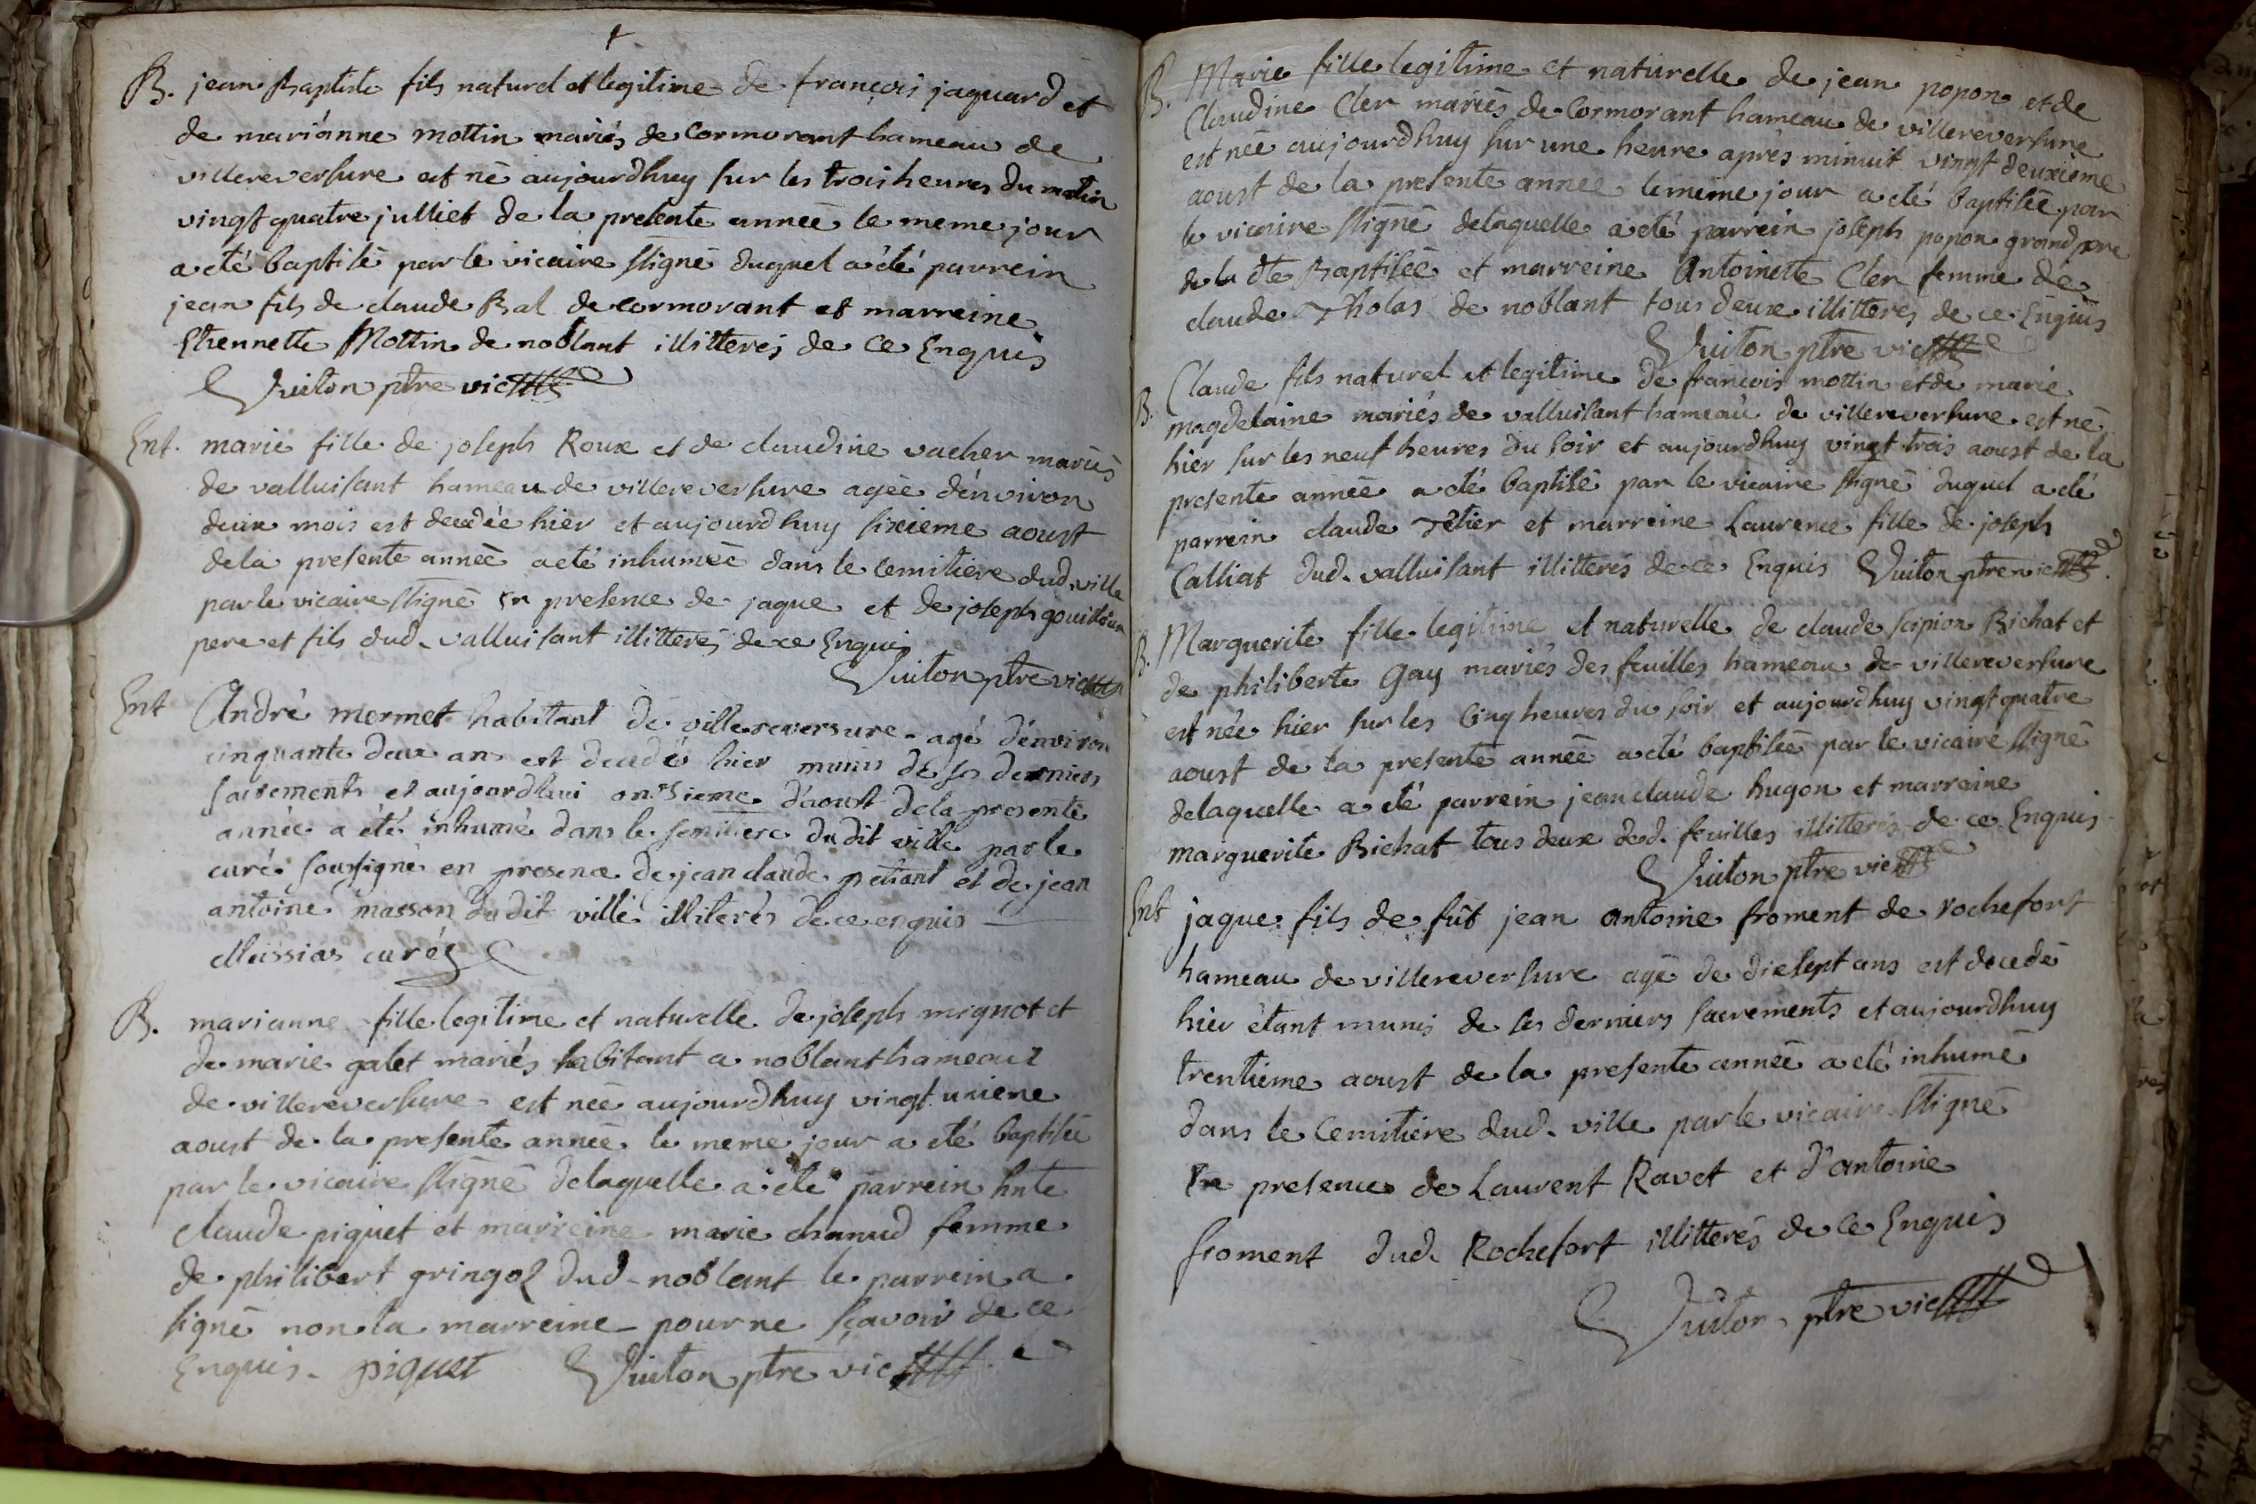 B. jean Baptiste fils naturel et legitime de françois jaquard et
de mariánne mottin mariés de Cormorant hameau de
villereversure est né aujourdhuy sur les trois heures du matin
vingt quatre julliet de la presente anneé le meme jour
a eté baptisé par le vicaire ssigné duquel a été parrein
jean fils de claude Bal de cormorant et marreine
Ethennette Mottin de noblant illitterés de ce Enquis
Vuiton ptre vic
Ent. marie fille de joseph Roux et de claudine vacher mariés
de valluisant hameau de villereversure ageé d'environ
deux mois est decedeé hier et aujourdhuy sixieme aoust
de la presente anneé a eté inhumeé dans le cemitiere dud. ville
par le vicaire ssigné En presence de jaque et de joseph
pere et fils dud. valluisant illitterés de ce Enquis
Vuiton ptre vic
Ent André mermet habitant de villereversure agé d'environ
cinquante deux ans est decedé hier munis de ses derniers
sacrements et aujourdhui onzsieme d'aoust de la presente
année a été inhumé dans le semitiere du dit ville par le
curé soussigné en presence de jean claude petiant et de jean
antoine masson du dit ville illiterés de ce enquis
Messias curé
B. marianne fille legitime et naturelle de joseph mignot et
de marie galet mariés habitant a noblant hameaux
de villereversure est neé aujourdhuy vingt unieme
aoust de la presente anneé le meme jour a eté baptiseé
par le vicaire ssigné delaquelle a eté parrein hnte
claude piquet et marreine marie chanud femme
de philibert gringoz dud. noblant le parrein a
signé non la marreine pour ne sçavoir de ce
Enquis. piquet Vuiton ptre vic
B. Marie fille legitime et naturelle de jean popon et de
Claudine Cler mariés de Cormorant hameau de villereversure
est neé aujourdhuy sur une heure aprés minuit vingt deuxieme
aoust de la presente anneé le meme jour a eté baptiseé par
le vicaire ssigné delaquelle a eté parrein joseph popon grand pere
de la dte Baptiseé et marreine Antoinette Cler femme de
claude Tholas de noblant tous deux illitterés de ce Enquis
Vuiton ptre vic
B. Claude fils naturel et legitime de françois mottin et de marie
magdelaine mariés de valluisant hameau de villereversure est né
hier sur les neuf heures du soir et aujourdhuy vingt trois aoust de la
presente anneé a eté baptisé par le vicaire ssigné duquel a eté
parrein claude tetier et marreine Laurence fille de joseph
Calliat dud. valluisant illitterés de ce Enquis Vuiton ptre vic
B. Marguerite fille legitime et naturelle de claude scipion Bichat et
de philiberte Gay mariés des feuilles hameau de villereversure
est neé hier sur les Cinq heures du soir et aujourdhuy vingt quatre
aoust de la presente anneé a eté baptiseé par le vicaire ssigné
delaquelle a eté parrein jean claude hugon et marreine
marguerite Bichat tous deux desd. feuilles illitterés de ce Enquis
Vuiton ptre vic
Ent jaque fils de fût jean antoine froment de rochefort
hameau de villereversure agé de dixsept ans est decedé
hier étant munis de ses derniers sacrements et aujourdhuy
trentieme aoust de la presente anneé a eté inhumé
dans le Cemitiere dud. ville par le vicaire ssigné
En presence de Laurent Ravet et d'antoine
froment dud. Rochefort illitterés de ce Enquis
Vuiton ptre vic